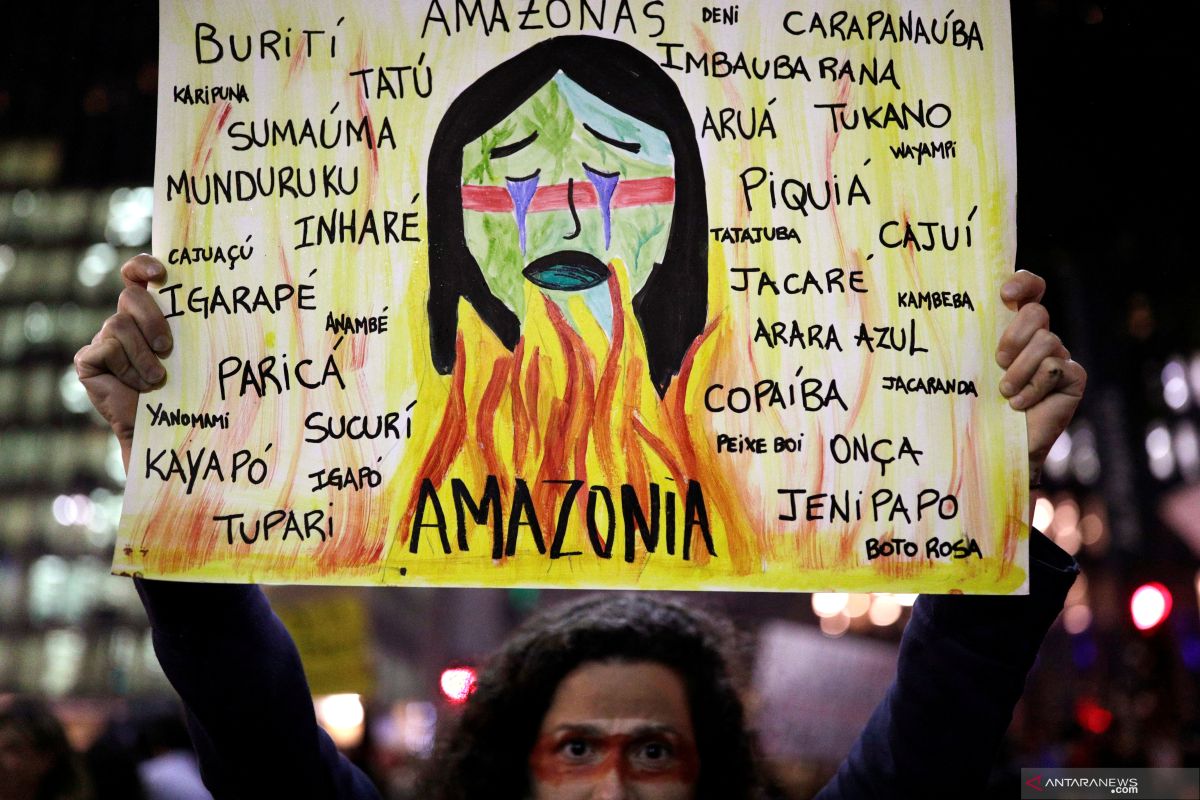 AMAZONAS
DENI
BURITÍ
CARAPANAÚBA
KARIPUNA
TATÚ
IMBAUBARANA
SUMAÚMA
ARUÁ
TUKANO
WAYAMPI
MUNDURUKU
PIQUIÁ
INHARÉ
TATAJUBA
CAJUÍ
CAJUAÇÚ
IGARAPÉ
JACARÉ
KAMBEBA
ANAMBÉ
ARARA AZUL
PARICÁ
COPAÍBA
JACARANDA
YANOMAMI
SUCURÍ
PEIXE BOI
ONÇA
KAYAPÓ
IGAPÓ
JENIPAPO
TUPARI
AMAZONIA
BOTO ROSA
ANTARANEWS
.com